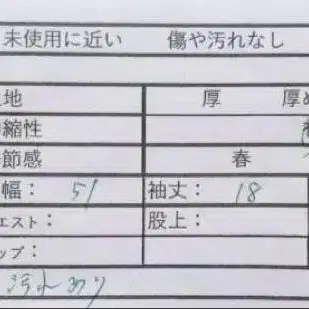 未使用に近い 傷や汚れなし
地 厚 厚め
縮性
節感 春
幅： 51 袖丈： 18
エスト： 股上：
ップ：
汚れあり